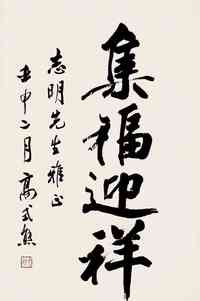 集福迎祥
志明先生雅正
壬申二月 高式熊